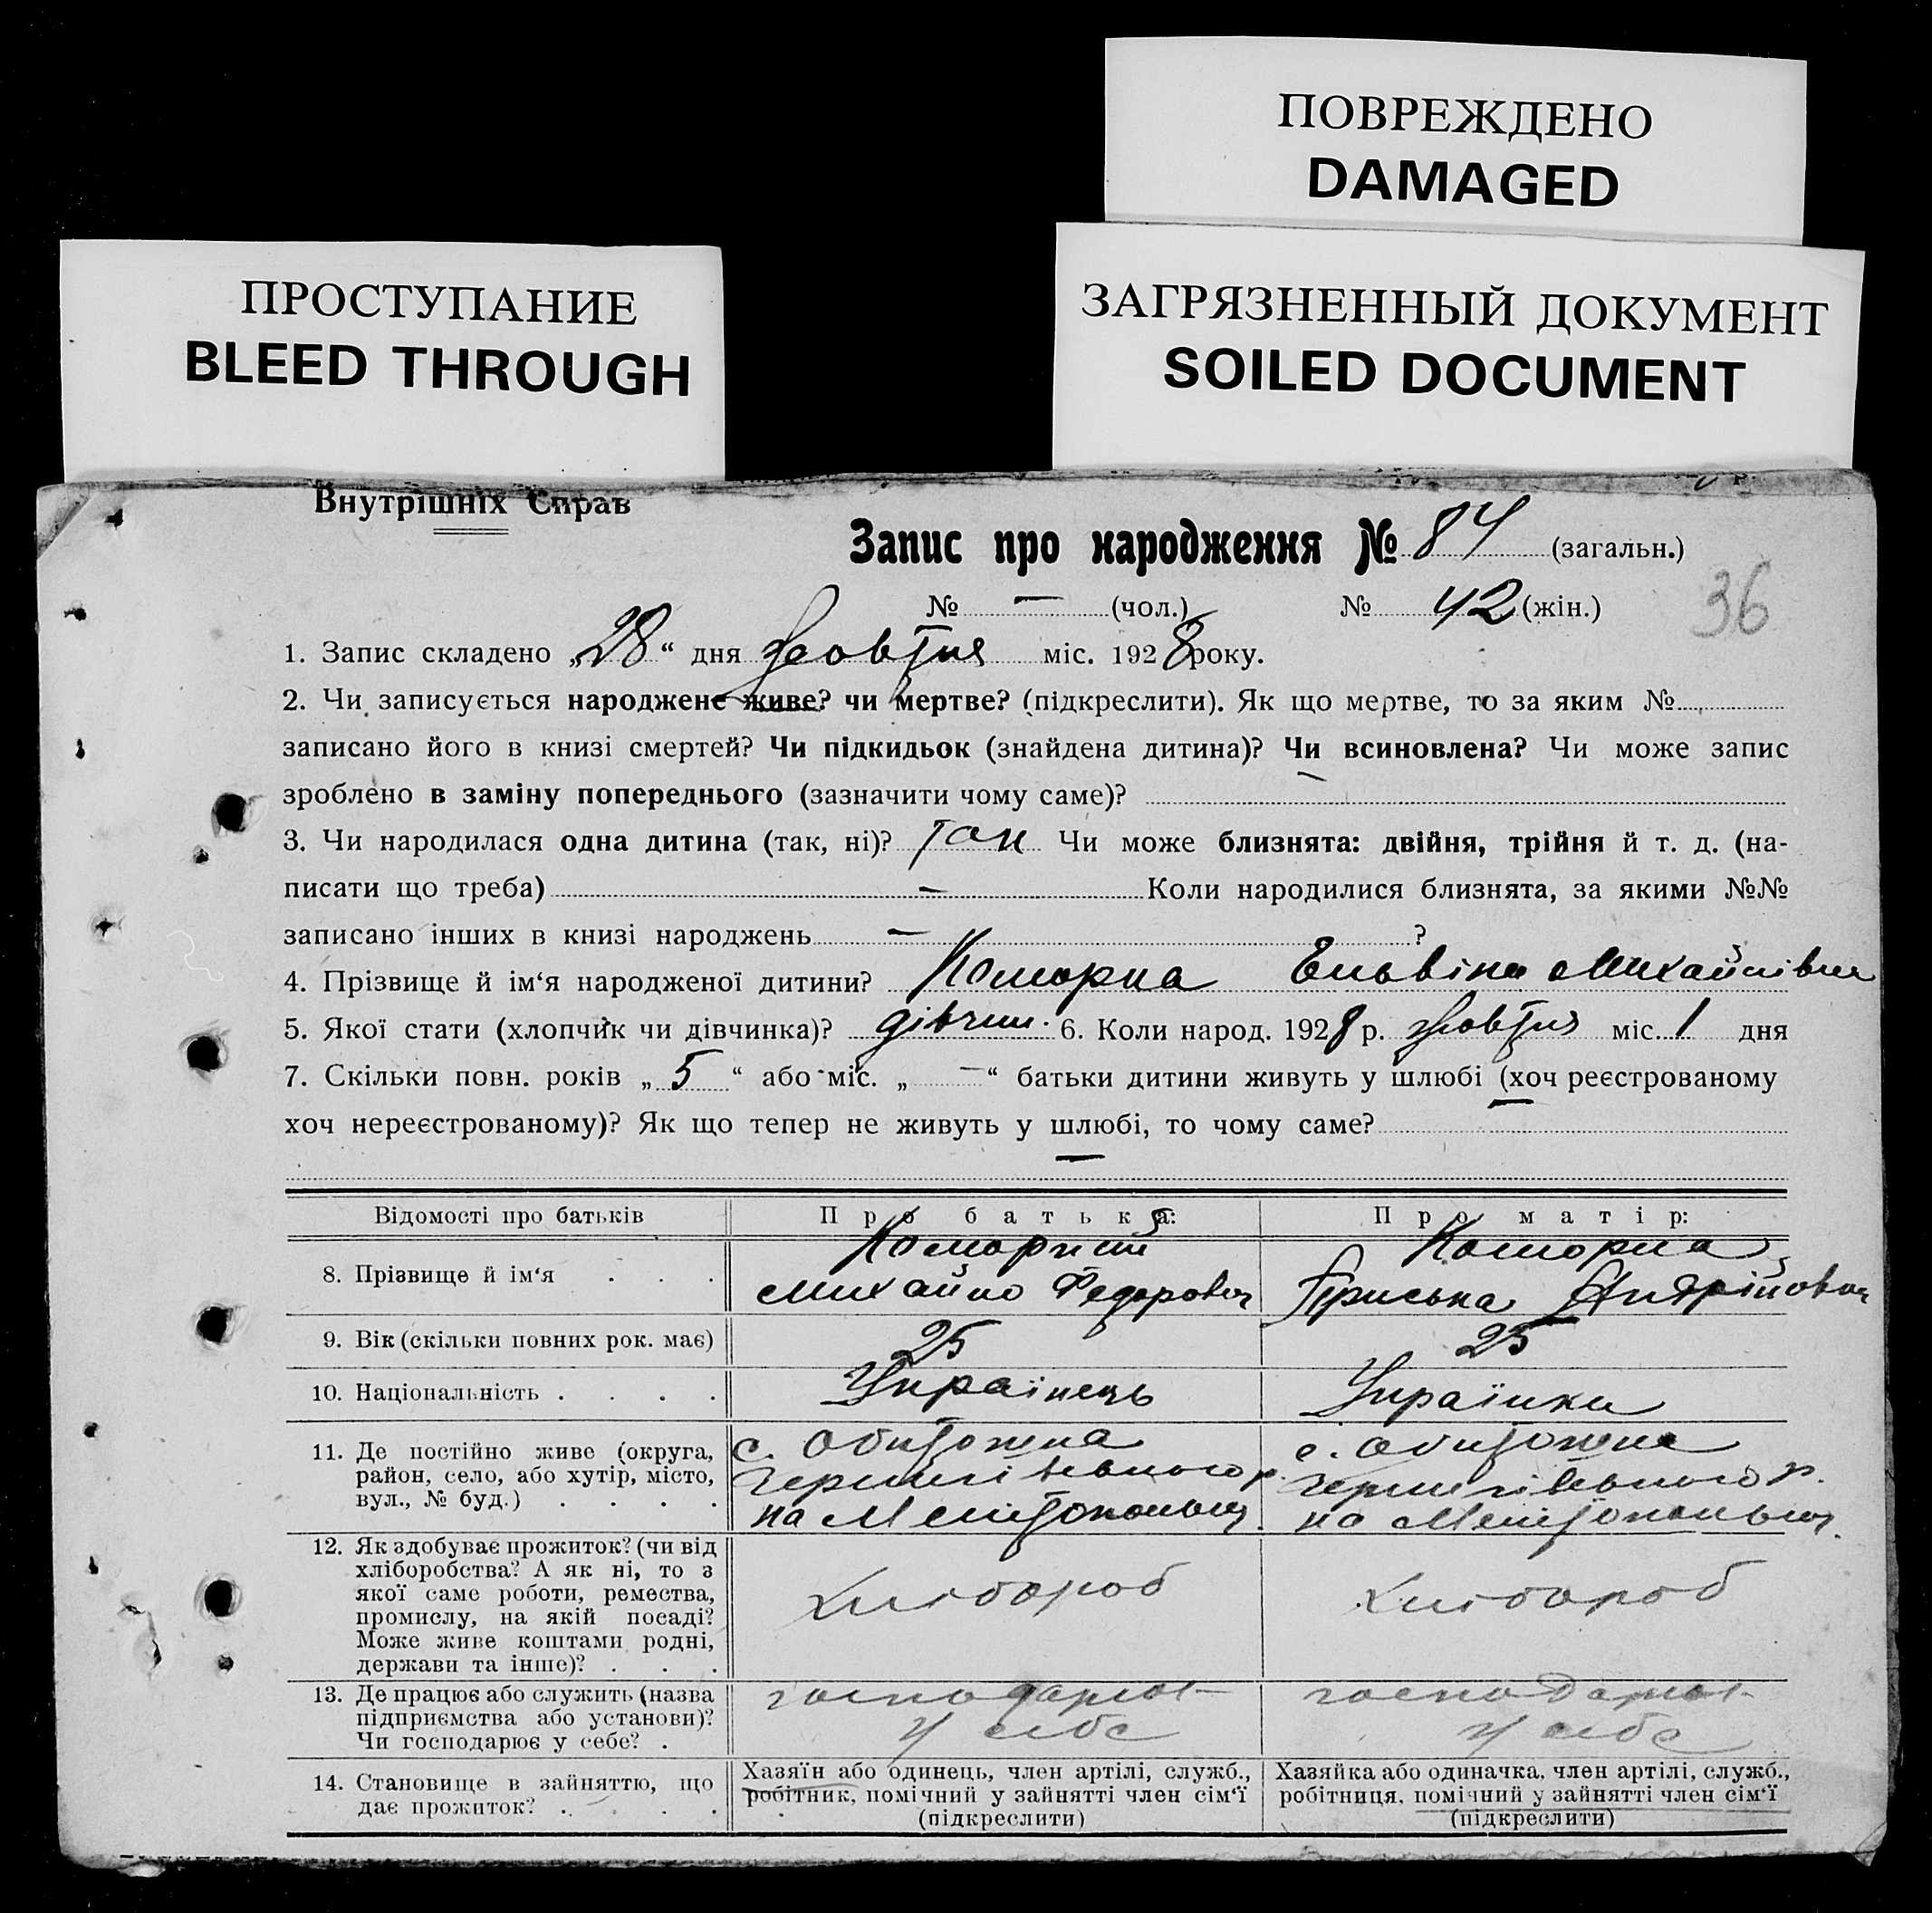 ПОВРЕЖДЕНО
DAMAGED
ПРОСТУПАНИЕ
BLEED THROUGH
ЗАГРЯЗНЕННЫЙ ДОКУМЕНТ
SOILED DOCUMENT
Внутрішніх Справ
Запис про народження № 84 (загальн.)
№ — (чол.) № 42 (жін.)
36
1. Запис складено „28“ дня Жовтня міс. 1928 року.
2. Чи записується народжене живе? чи мертве? (підкреслити). Як що мертве, то за яким №
записано його в книзі смертей? Чи підкидьок (знайдена дитина)? Чи всиновлена? Чи може запис
зроблено в заміну попереднього (зазначити чому саме)? —
3. Чи народилася одна дитина (так, ні)? так Чи може близнята: двійня, трійня й т. д. (на-
писати що треба) — Коли народилися близнята, за якими №№
записано інших в книзі народжень — ?
4. Прізвище й ім‘я народженої дитини? Коморна Ельвіна Михайлівна
5. Якої стати (хлопчик чи дівчинка)? дівчин. 6. Коли народ. 1928 р. жовтня міс. 1 дня
7. Скільки повн. років „ 5 “ або міс. „ — “ батьки дитини живуть у шлюбі (хоч реєстрованому
хоч нереєстрованому)? Як що тепер не живуть у шлюбі, то чому саме? —
—
Відомості про батьків Про батька: Про матір:
8. Прізвище й ім‘я . . . Коморний Михайло Федорович Коморна Пріська Андрійовна
9. Вік (скільки повних рок. має) 25 25
10. Національність . . . . Українець Українка
11. Де постійно живе (округа, с. Обіточна с. Обіточна
район, село, або хутір, місто, Чернигівського р. Чернигівського р.
вул., № буд.) . . . . на Мелітопольщ. на Мелітопольщ.
12. Як здобуває прожиток? (чи від
хліборобства? А як ні, то з
якої саме роботи, ремества, хлібороб хлібороб
промислу, на якій посаді?
Може живе коштами родні,
держави та інше)? . . .
13. Де працює або служить (назва господарює господарює
підприємства або установи)? у себе у себе
Чи господарює у себе? .
14. Становище в зайняттю, що Хазяїн або одинець, член артілі, служб., Хазяйка або одиначка, член артілі, служб.,
дає прожиток? . . . . робітник, помічний у зайнятті член сім‘ї робітниця, помічний у зайнятті член сім‘ї
(підкреслити) (підкреслити)